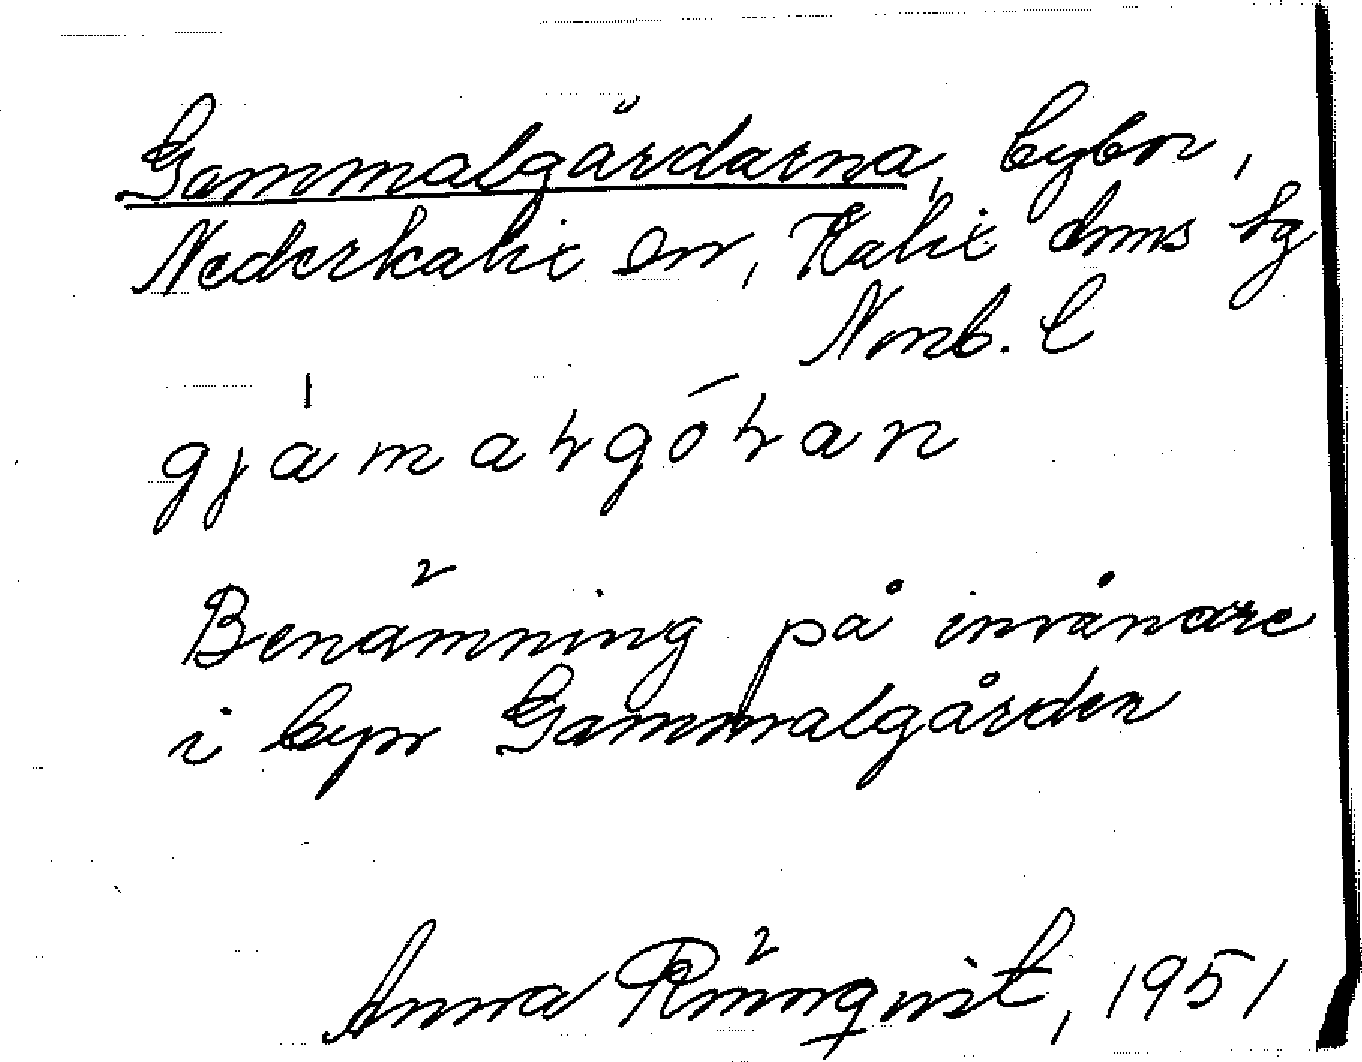 Gammalgårdarna, bybor,
Nederkalix sn, Kalix dms tg
Norrb. l
gjamaḷgóḷan
Benämning på invånare
i byn Gammalgården
Anna Rönnqvist, 1951